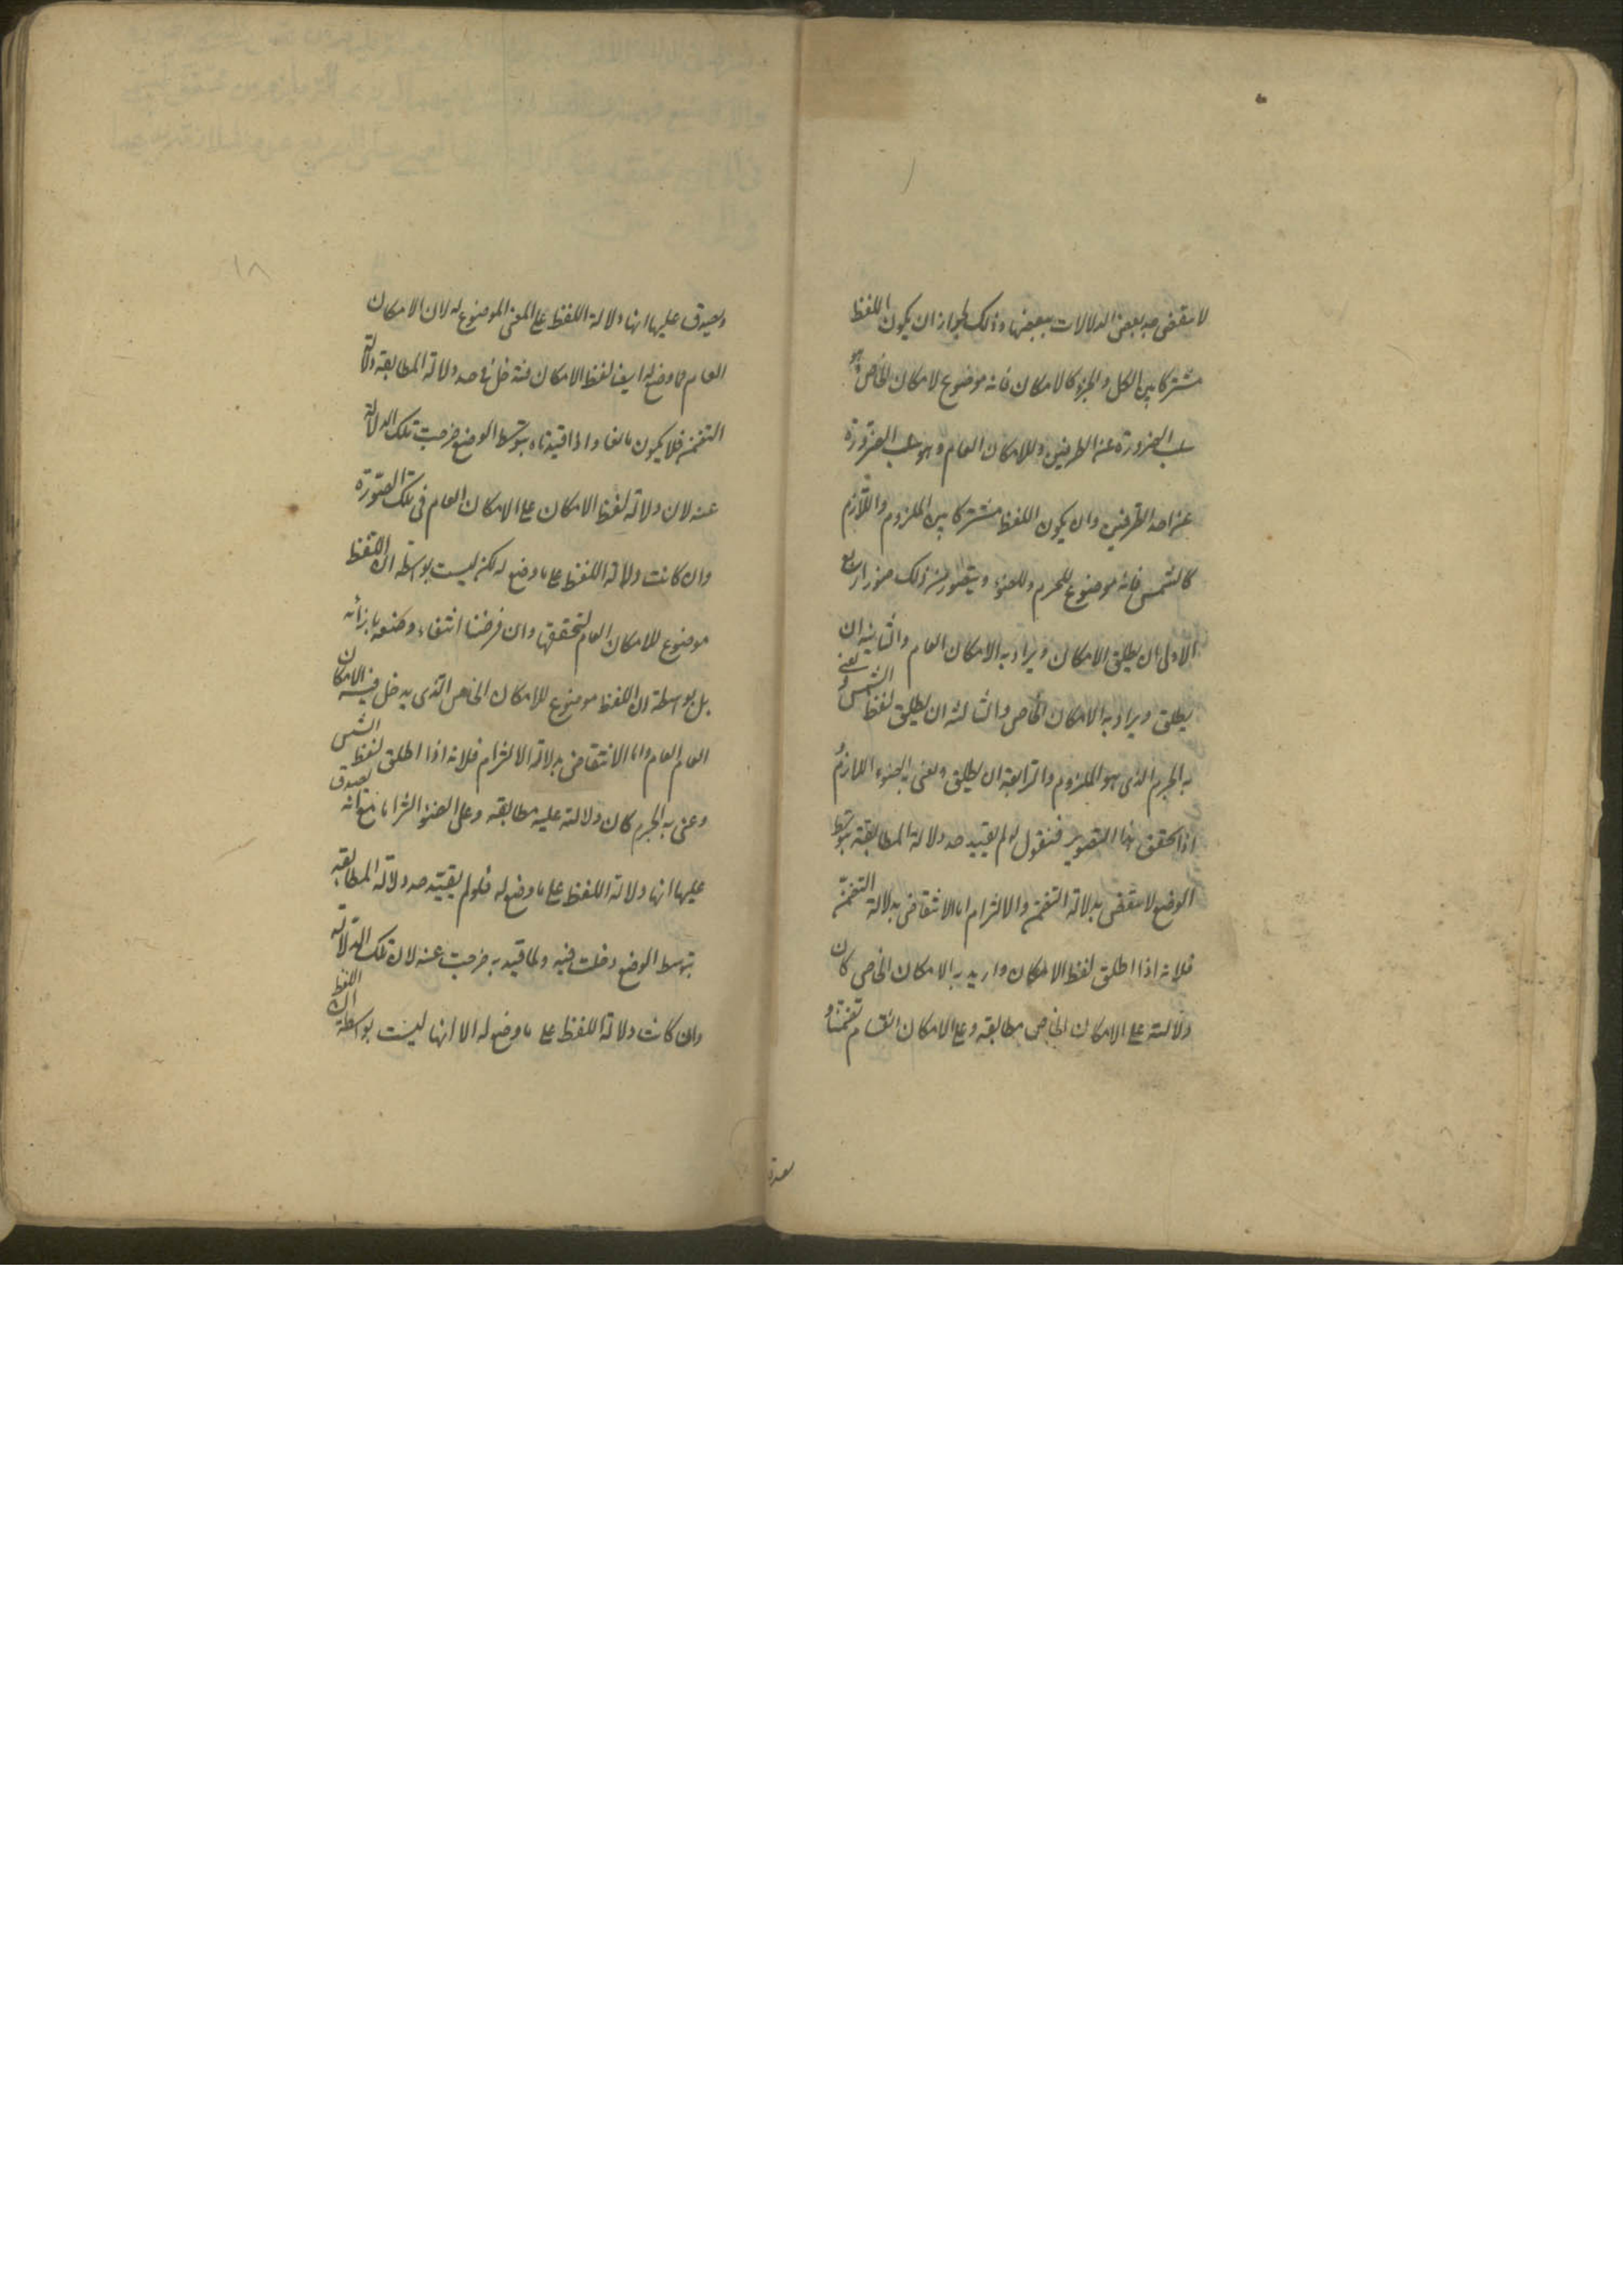 لانتقض حد بعض الدلالات ببعضها وذلك لجواز ان يكون اللفظ
مشتركا بين الكل والجزء كالامكان فانه موضوع لامكان الخاص وهو
سلب الضرورة عن الطرفين وللامكان العام وهو سلب الضرورة
عن احد الطرفين وان يكون اللفظ مشتركا بين الملزوم واللازم
كالشمس فانه موضوع للجرم وللضوء ويتصور من ذلك صور اربع
الاولى ان يطلق الامكان ويراد به الامكان العام والثانية ان
يطلق ويراد به الامكان الخاص والثالثة ان يطلق لفظ الشمس ويعنى
به الجرم الذى هو الملزوم والرابعة ان يطلق ويعنى به الضوء اللازم
اذا تحقق هذا التصوير فنقول لو لم يقيد حد دلالة المطابقة بتوسط
الوضع لانتقض بدلالة التضمن والالتزام اما الانتقاض بدلالة التضمن
فلانه اذا اطلق لفظ الامكان واريد به الامكان الخاص كان
دلالته على الامكان الخاص مطابقة وعلى الامكان العام تضمنا و
يصدق
١٨
ويصدق عليها انها دلالة اللفظ على المعنى الموضوع له لان الامكان
العام مما وضع له ايضا لفظ الامكان فتدخل فى حد دلالة المطابقة دلالة
التضمن فلا يكون مانعا واذا قيدناه بتوسط الوضع خرجت تلك الدلالة
عنه لان دلالة لفظ الامكان على الامكان العام فى تلك الصورة
وان كانت دلالة اللفظ على ما وضع له لكن ليست بواسطة ان اللفظ
موضوع للامكان العام لتحققها وان فرضنا انتفاء وضعه بازائه
بل بواسطة ان اللفظ موضوع للامكان الخاص الذى يدخل فيه الامكان
العام العام واما الانتقاض بدلالة الالتزام فلانه اذا اطلق لفظ الشمس
وعنى به الجرم كان دلالته عليه مطابقة وعلى الضوء التزاما مع انه يصدق
عليها انها دلالة اللفظ على ما وضع له فلو لم يقيد حد دلالة المطابقة
بتوسط الوضع دخلت فيه ولما قيد به خرجت عنه لان تلك الدلالة
وان كانت دلالة اللفظ على ما وضع له الا انها ليست بواسطة ان اللفظ